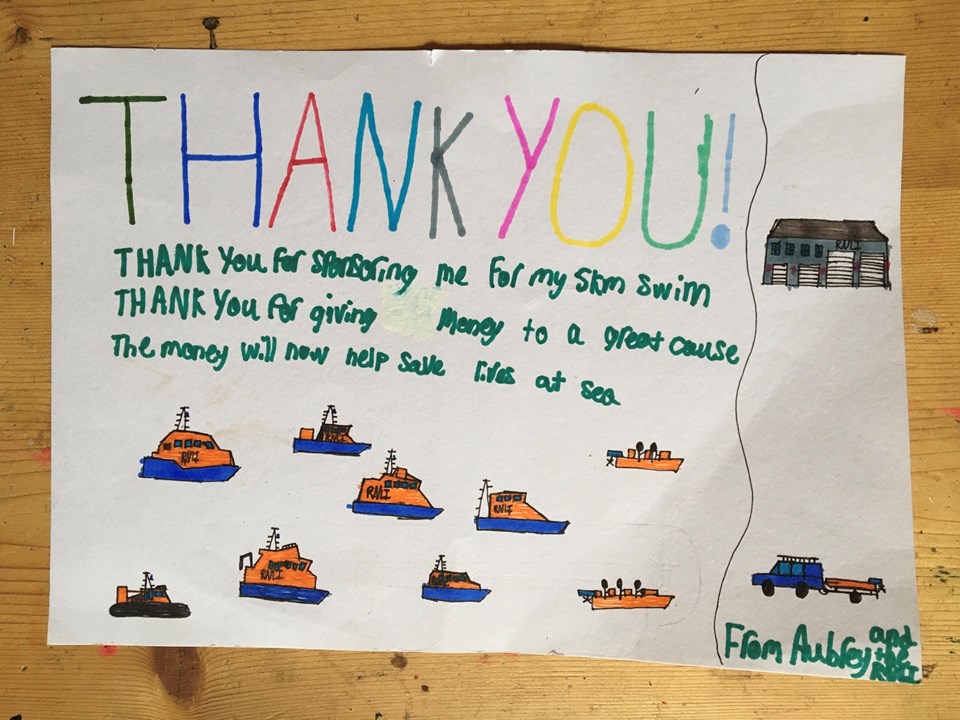 THANK YOU!
THANK YOU for sponsoring me for my 5km swim
THANK YOU for giving money to a great cause
The money will now help save lives at sea
RNLI
RNLI
RNLI
RNLI
RNLI
RNLI
From Aubrey and the RNLI